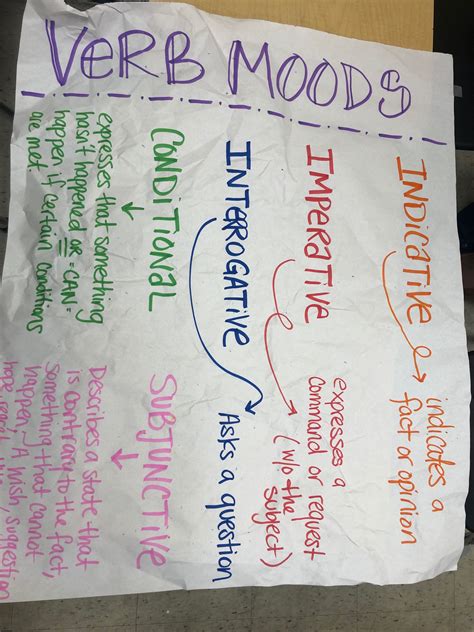 VERB MOODS
INDICATIVE
indicates a
fact or opinion
IMPERATIVE
expresses a
Command or request
(w/o the
subject)
INTERROGATIVE
Asks a question
CONDITIONAL
expresses that something
hasn't happened or =CAN=
happen if certain conditions
are met
SUBJUNCTIVE
Describes a state that
is contrary to the fact,
Something that cannot
happen ~ A wish, suggestion
hope